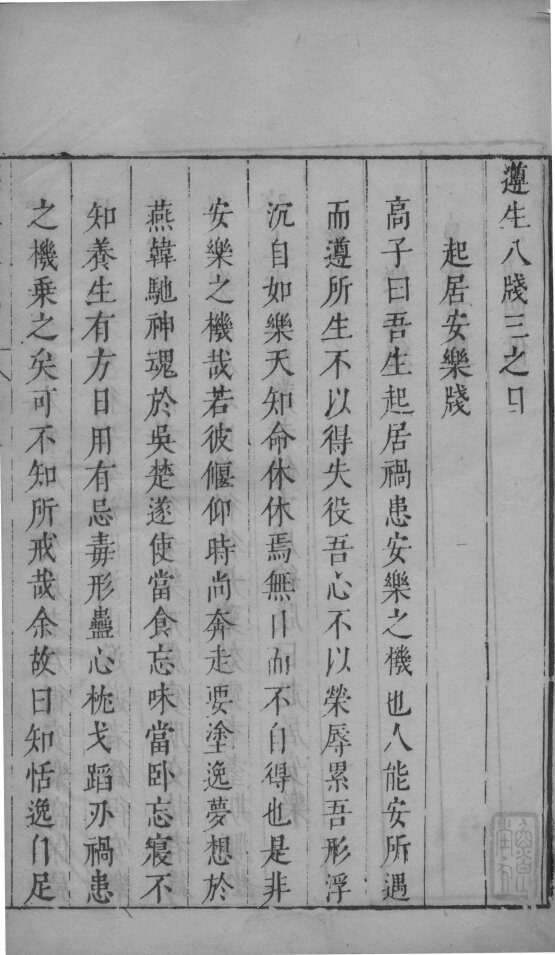 遵生八牋三之目
起居安樂牋
高子曰吾生起居禍患安樂之機也人能安所遇
而遵所生不以得失役吾心不以榮辱累吾形浮
沉自如樂天知命休休焉無日而不自得也是非
安樂之機哉若彼偃仰時尚奔走要塗逸夢想於
燕韓馳神魂於吳楚遂使當食忘味當卧忘寢不
知養生有方日用有忌毒形蠱心枕戈蹈刃禍患
之機乘之矣可不知所戒哉余故曰知恬逸自足